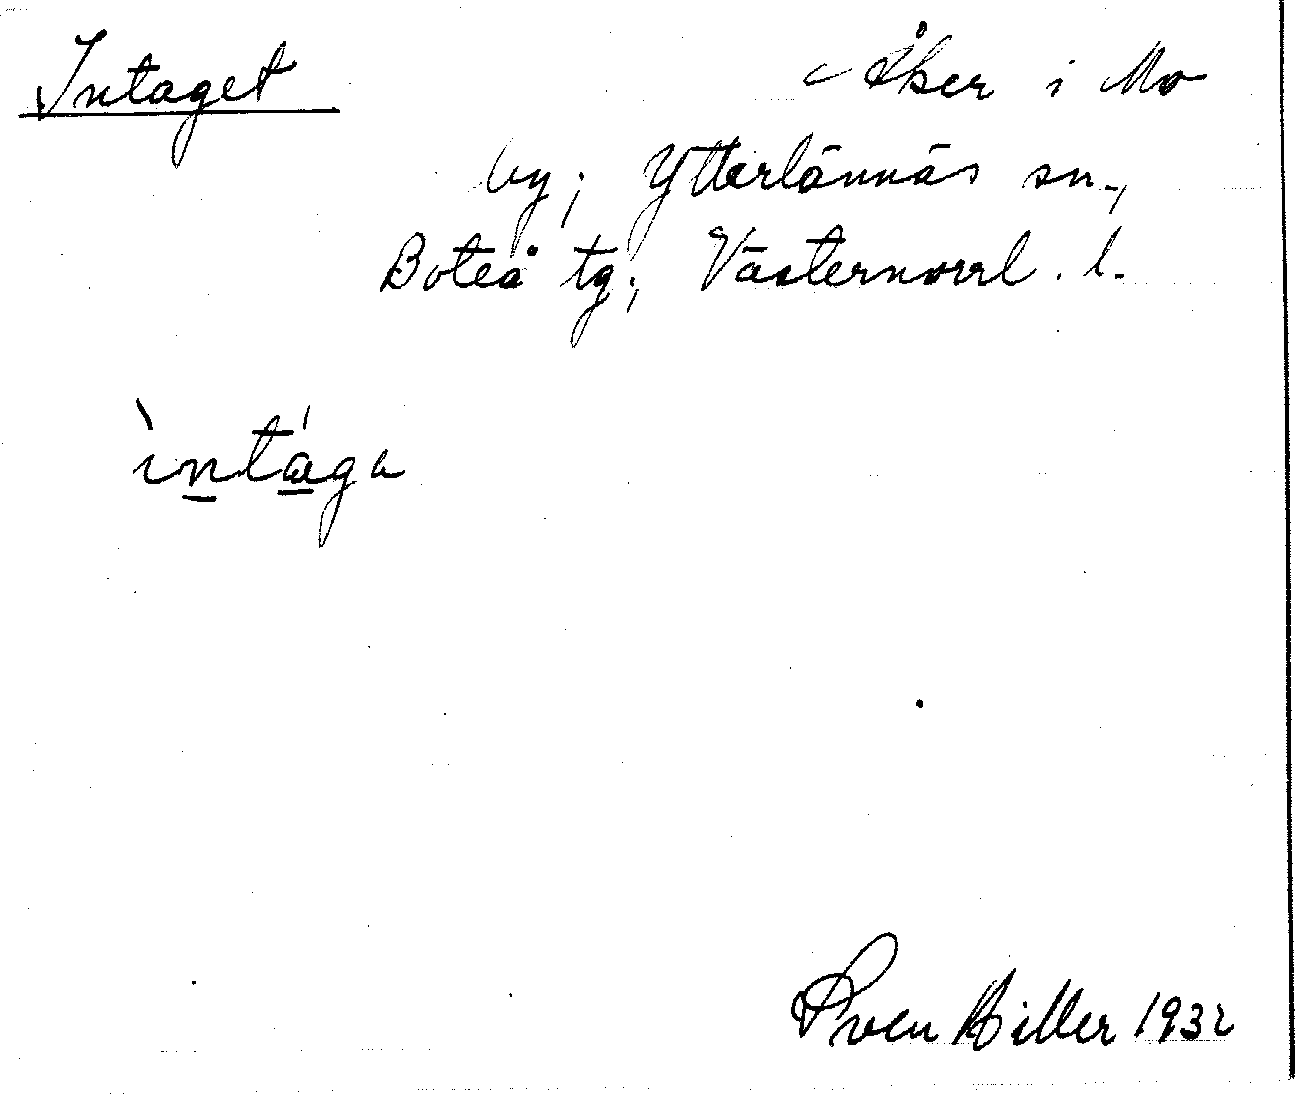 Intaget
Åker i Mo
by; Ytterlännäs sn.,
Boteå tg; Västernorrl. l.
ìntága
Sven Hiller 1932